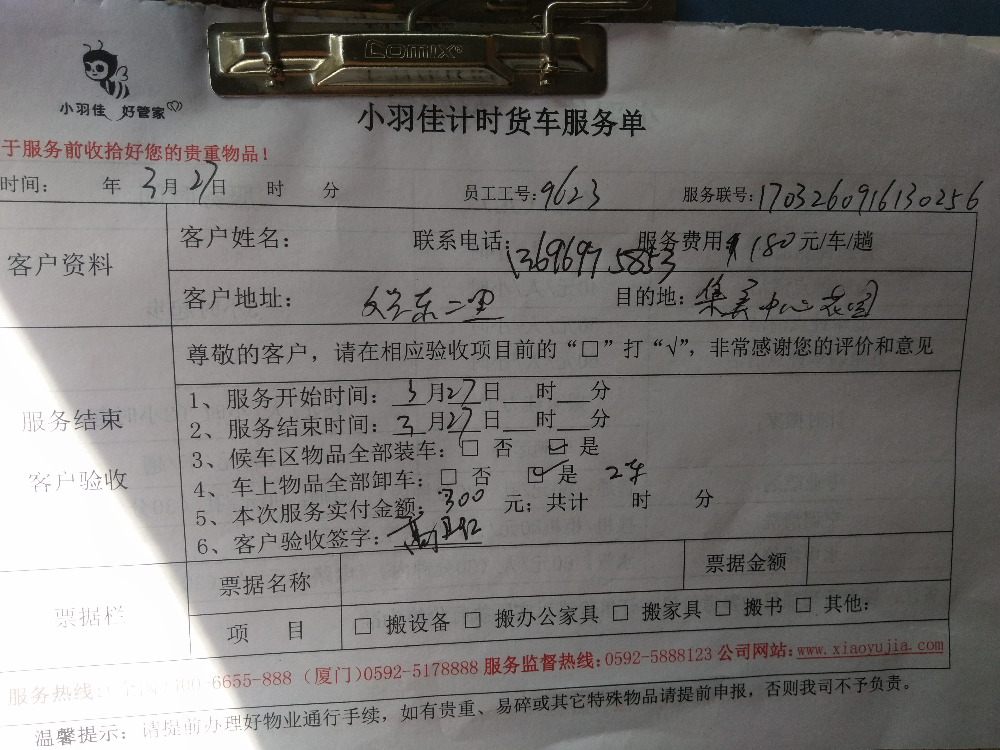 Comix
小羽佳 好管家
小羽佳计时货车服务单
于服务前收拾好您的贵重物品！
时间： 年 3月27日 时 分 员工工号：9623 服务联号：1703260916130256
客户资料
客户姓名： 联系电话：13696975853 服务费用 180元/车/趟
客户地址： 东二里 目的地：集美中心花园
尊敬的客户，请在相应验收项目前的“□”打“√”，非常感谢您的评价和意见
服务结束
客户验收
1、服务开始时间：3月27日___时___分
2、服务结束时间：3月27日___时___分
3、候车区物品全部装车：□ 否 ☑ 是
4、车上物品全部卸车：□ 否 ☑ 是 2车
5、本次服务实付金额：300 元；共计 时 分
6、客户验收签字：
票据栏
票据名称 票据金额
项 目 □ 搬设备 □ 搬办公家具 □ 搬家具 □ 搬书 □ 其他：
服务热线：6655-888（厦门）0592-5178888 服务监督热线：0592-5888123 公司网站：www.xiaoyujia.com
温馨提示：请提前办理好物业通行手续，如有贵重、易碎或其它特殊物品请提前申报，否则我司不予负责。